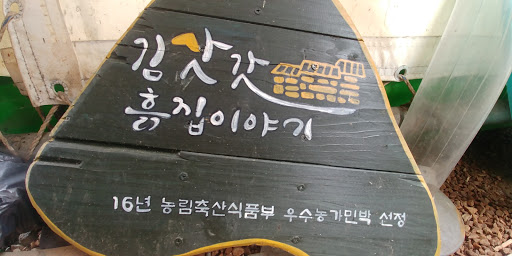 김삿갓
흙집이야기
16년 농림축산식품부 우수농가민박 선정